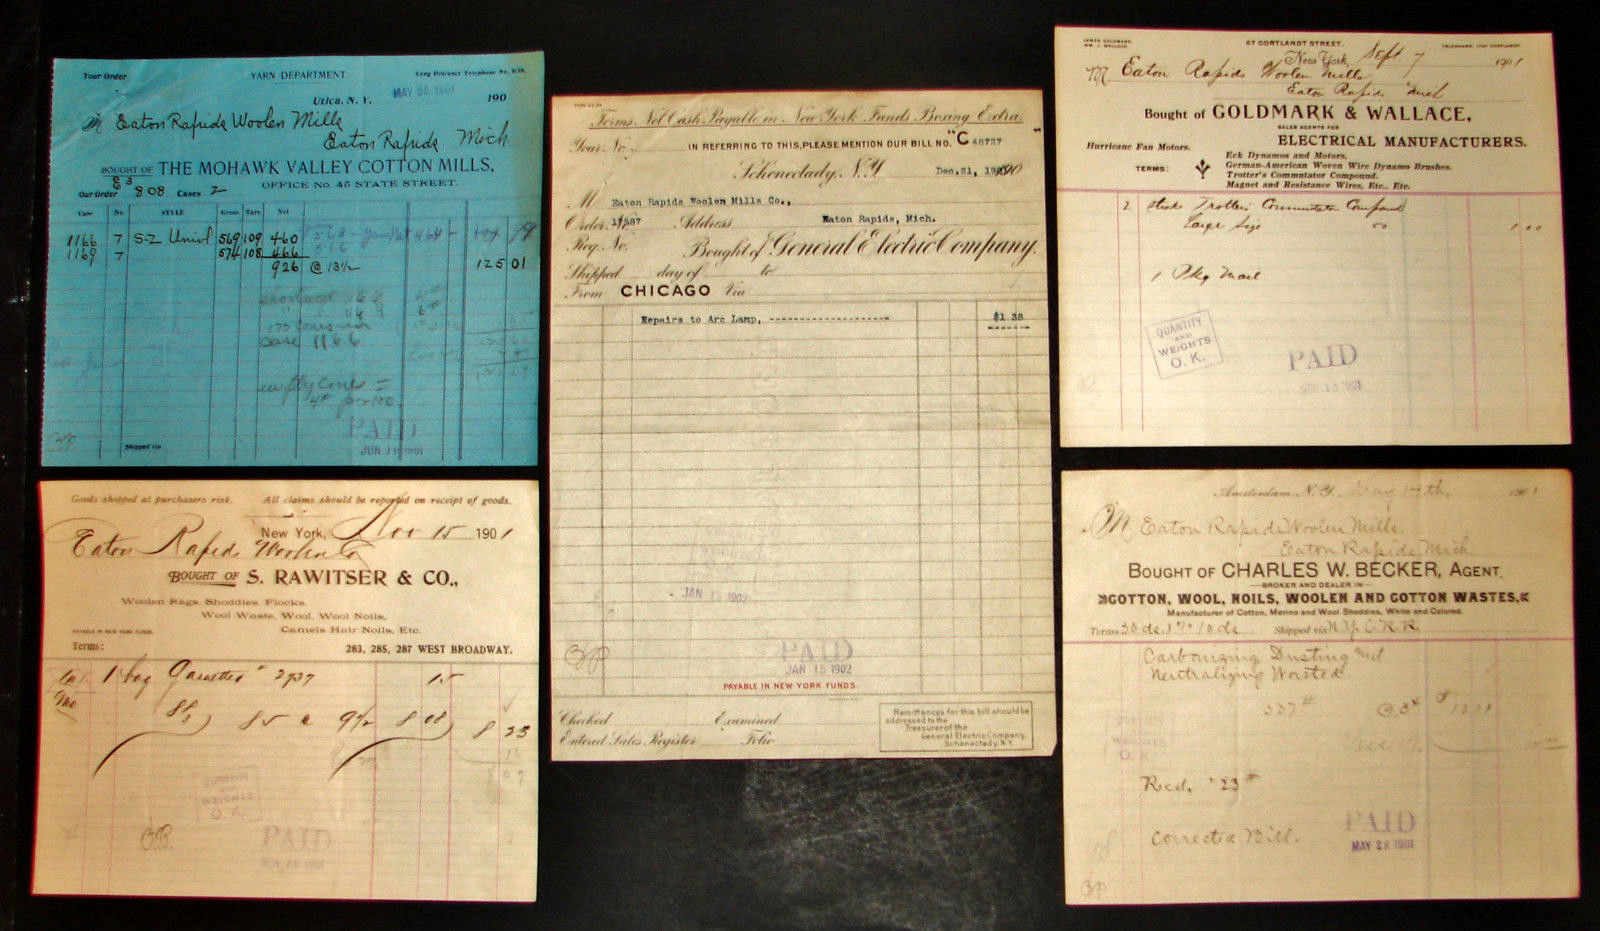 Your Order
YARN DEPARTMENT.
Long Distance Telephone No. 638.
Utica, N. Y.
MAY 1901
190
M Eaton Rapids Woolen Mills
Eaton Rapids Mich
BOUGHT OF THE MOHAWK VALLEY COTTON MILLS,
OFFICE No. 45 STATE STREET.
Our Order 808 Cases 2
Case No. STYLE Gross Tare Net
1166 7 S-2 Univl 569 109 460
1169 7 574 108 466
926 @ 13½ 125 01
1166
case 1166
empty cone =
4# per 100.
PAID
JUN 1901
Shipped via
Terms Net Cash Payable in New York Funds Boxing Extra.
Your No.
IN REFERRING TO THIS, PLEASE MENTION OUR BILL NO. "C 48727 "
Schenectady, N.Y. Dec. 21, 190
M Eaton Rapids Woolen Mills Co.,
Order Address Eaton Rapids, Mich.
Reg. No. Bought of General Electric Company.
Shipped day of to
From CHICAGO Via
Repairs to Arc Lamp, -------------------- $1 38
JAN 15 1902
PAID
JAN 15 1902
PAYABLE IN NEW YORK FUNDS.
Checked Examined
Entered Sales Register Folio
Remittances for this bill should be
addressed to the
Treasurer of the
General Electric Company,
Schenectady, N.Y.
67 CORTLANDT STREET.
New York, Sept 7 1901
M Eaton Rapids Woolen Mills
Eaton Rapids Mich
Bought of GOLDMARK & WALLACE,
SALES AGENTS FOR
ELECTRICAL MANUFACTURERS.
Hurricane Fan Motors.
Eck Dynamos and Motors.
German-American Woven Wire Dynamo Brushes.
TERMS:
Trotter's Commutator Compound.
Magnet and Resistance Wires, Etc., Etc.
2 Sticks Trotters Commutator Compound
Large Size 50 1 00
1 Pkg Mail
QUANTITY
AND
WEIGHTS
O. K.
PAID
1901
Goods shipped at purchasers risk. All claims should be reported on receipt of goods.
New York, Nov 15 1901
Eaton Rapids Woolen Co
BOUGHT OF S. RAWITSER & CO.,
Woolen Rags, Shoddies, Flocks,
Wool Waste, Wool, Wool Noils,
Camels Hair Noils, Etc.
PAYABLE IN NEW YORK FUNDS.
Terms: 283, 285, 287 WEST BROADWAY.
1 bag Garnetted # 2737 15
88
3 85 @ 9½ 8 08 8 23
WEIGHTS
O. K.
PAID
1901
Amsterdam N.Y. May 14th, 1901
M Eaton Rapids Woolen Mills.
Eaton Rapids Mich
BOUGHT OF CHARLES W. BECKER, AGENT.
BROKER AND DEALER IN
COTTON, WOOL, NOILS, WOOLEN AND COTTON WASTES,
Manufacturer of Cotton, Merino and Wool Shoddies, White and Colored.
Terms 30 ds. 1% 10 ds Shipped via N.Y.C.R.R.
Carbonizing Dusting and
Neutralizing Worsted.
337# @ 3¢
WEIGHTS
O. K.
Recd. 23#
Corrected Bill.
PAID
MAY 28 1901